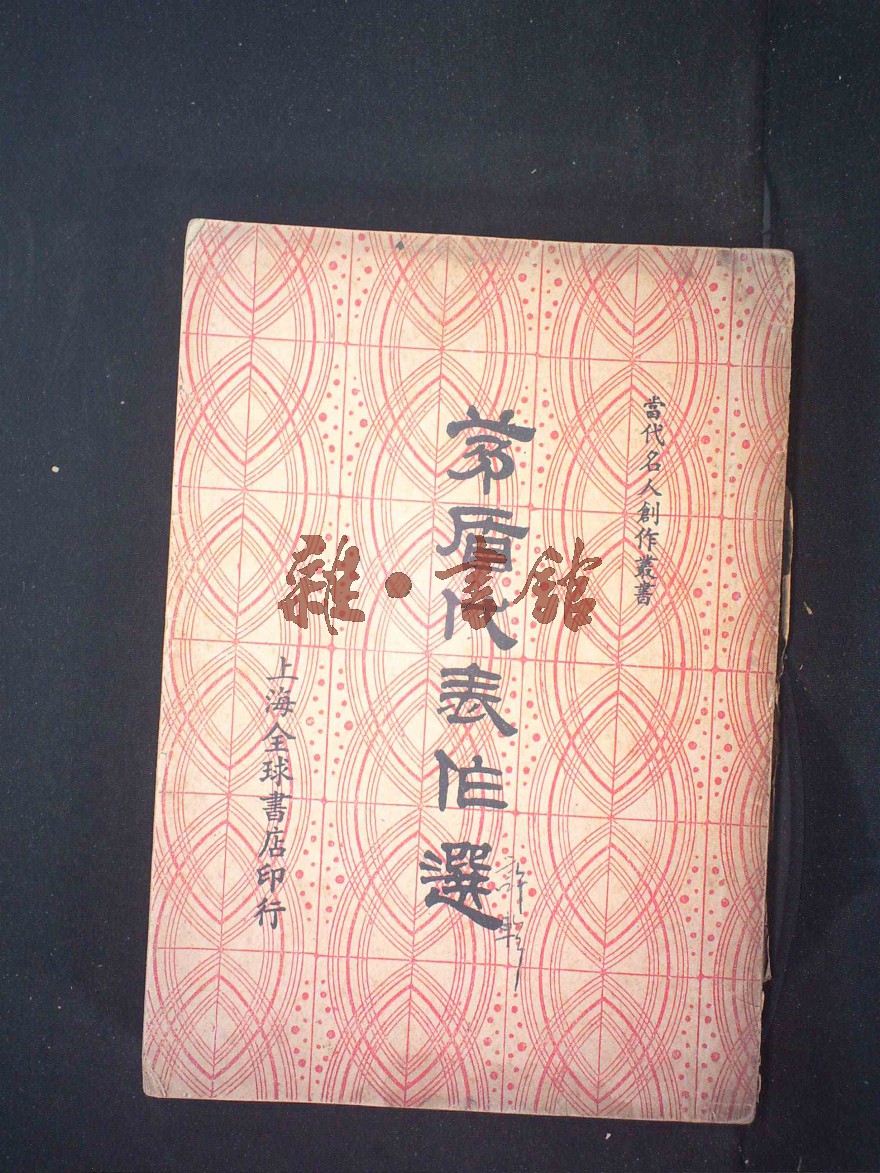 當代名人創作叢書
茅盾代表作選
上海全球書店印行
雜·書館